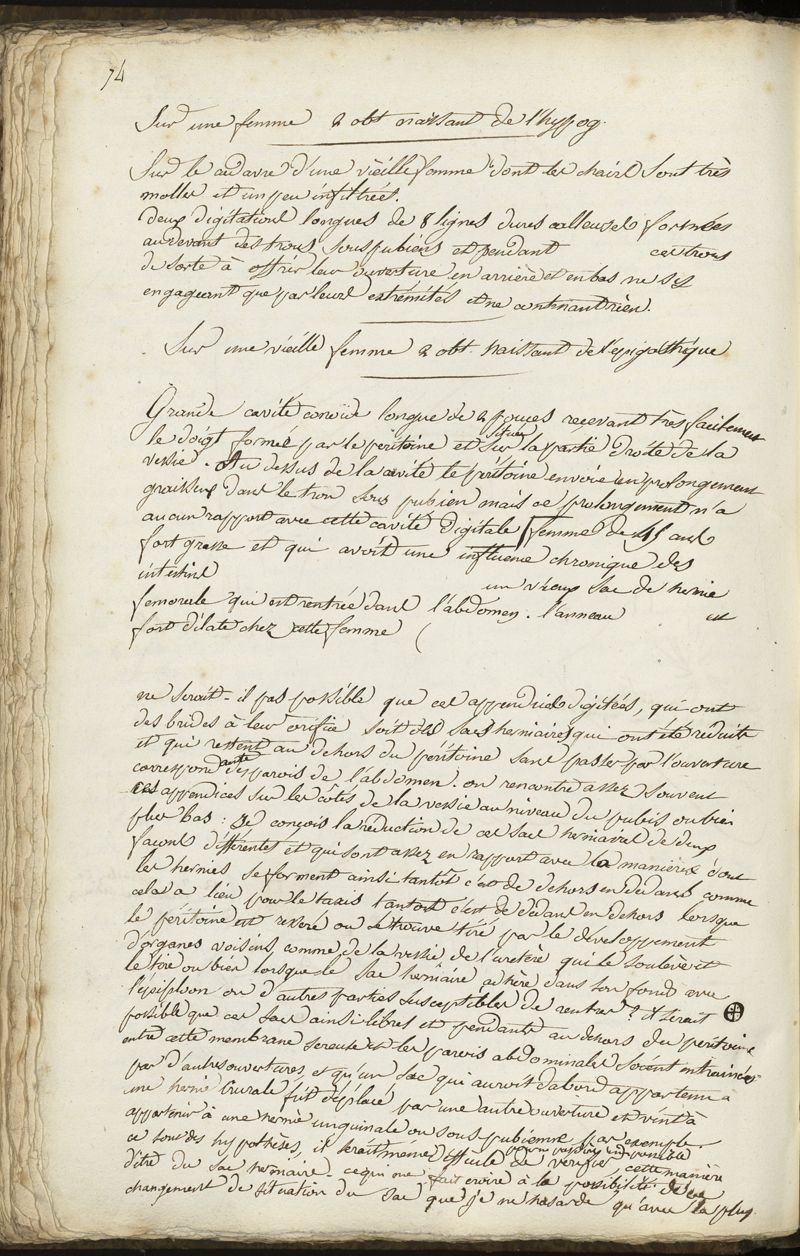 74
Sur une femme 2 obt naissant de l'hypog.
Sur le cadavre d'une vieille femme dont les chairs sont très
molles et un peu infiltrées.
deux digitations longues de 8 lignes dures calleuses formées
au devant des trous souspubiens et pendant ces trous
de sorte à offrir leur ouverture en arrière et en bas ne s'y
engageant que par leurs extrémités et ne contenant rien.
Sur une vieille femme 2 obt. naissant de l'épigastrique
Grande cavité conoïde longue de 2 pouces recevant très facilement
le doigt formée par le péritoine et située sur la partie droite de la
vessie. Au dessus de la cavité le péritoine envoie un prolongement
graisseux dans le trou sous pubien mais ce prolongement n'a
aucun rapport avec cette cavité digitale femme de 45 ans
fort grasse et qui avoit une influence chronique des
intestins un vieux sac de hernie
femorale qui est rentrée dans l'abdomen. l'anneau est
fort dilaté chez cette femme (
ne serait-il pas possible que ces appendices digitées, qui ont
des brides à leur orifice soit des sacs herniaires qui ont été réduits
et qui restent au dehors du péritoine sans passer par l'ouverture
correspondante des parois de l'abdomen. on rencontre assez souvent
ces appendices sur les côtés de la vessie au niveau du pubis ou bien
plus bas : Je conçois la réduction de ces sacs herniaires de deux
façons différentes et qui sont assez en rapport avec la manières dont
les hernies se forment ainsi tantôt c'est de dehors en dedans comme
cela a lieu pour le taxis tantôt c'est de dedans en dehors lorsque
le péritoine est resseré ou se trouve tiré par le développement
d'organes voisins, comme de la vessie de l'uretère qui le soulève et
le tire ou bien lorsque le sac herniaire adhère dans son fond avec
l'épiploon ou d'autres parties susceptibles de rentrer ? Il serait ⊕
possible que ces sacs ainsi libres et pendants au dehors du péritoine
entre cette membrane sereuse et les parois abdominales soient entrainées
par d'autres ouvertures, et qu'un sac qui auroit d'abord appartenu a
une hernie crurale fut déplacé par une autre ouverture et vint à
appartenir à une hernie inguinale ou sous pubienne par exemple.
ce sont des hypothèses, il serait même difficile de vérifier cette manière
d'être du sac herniaire. ce qui me fait croire à la possibilité de ce
changement de situation du sac que je ne hasarde qu'avec la plus